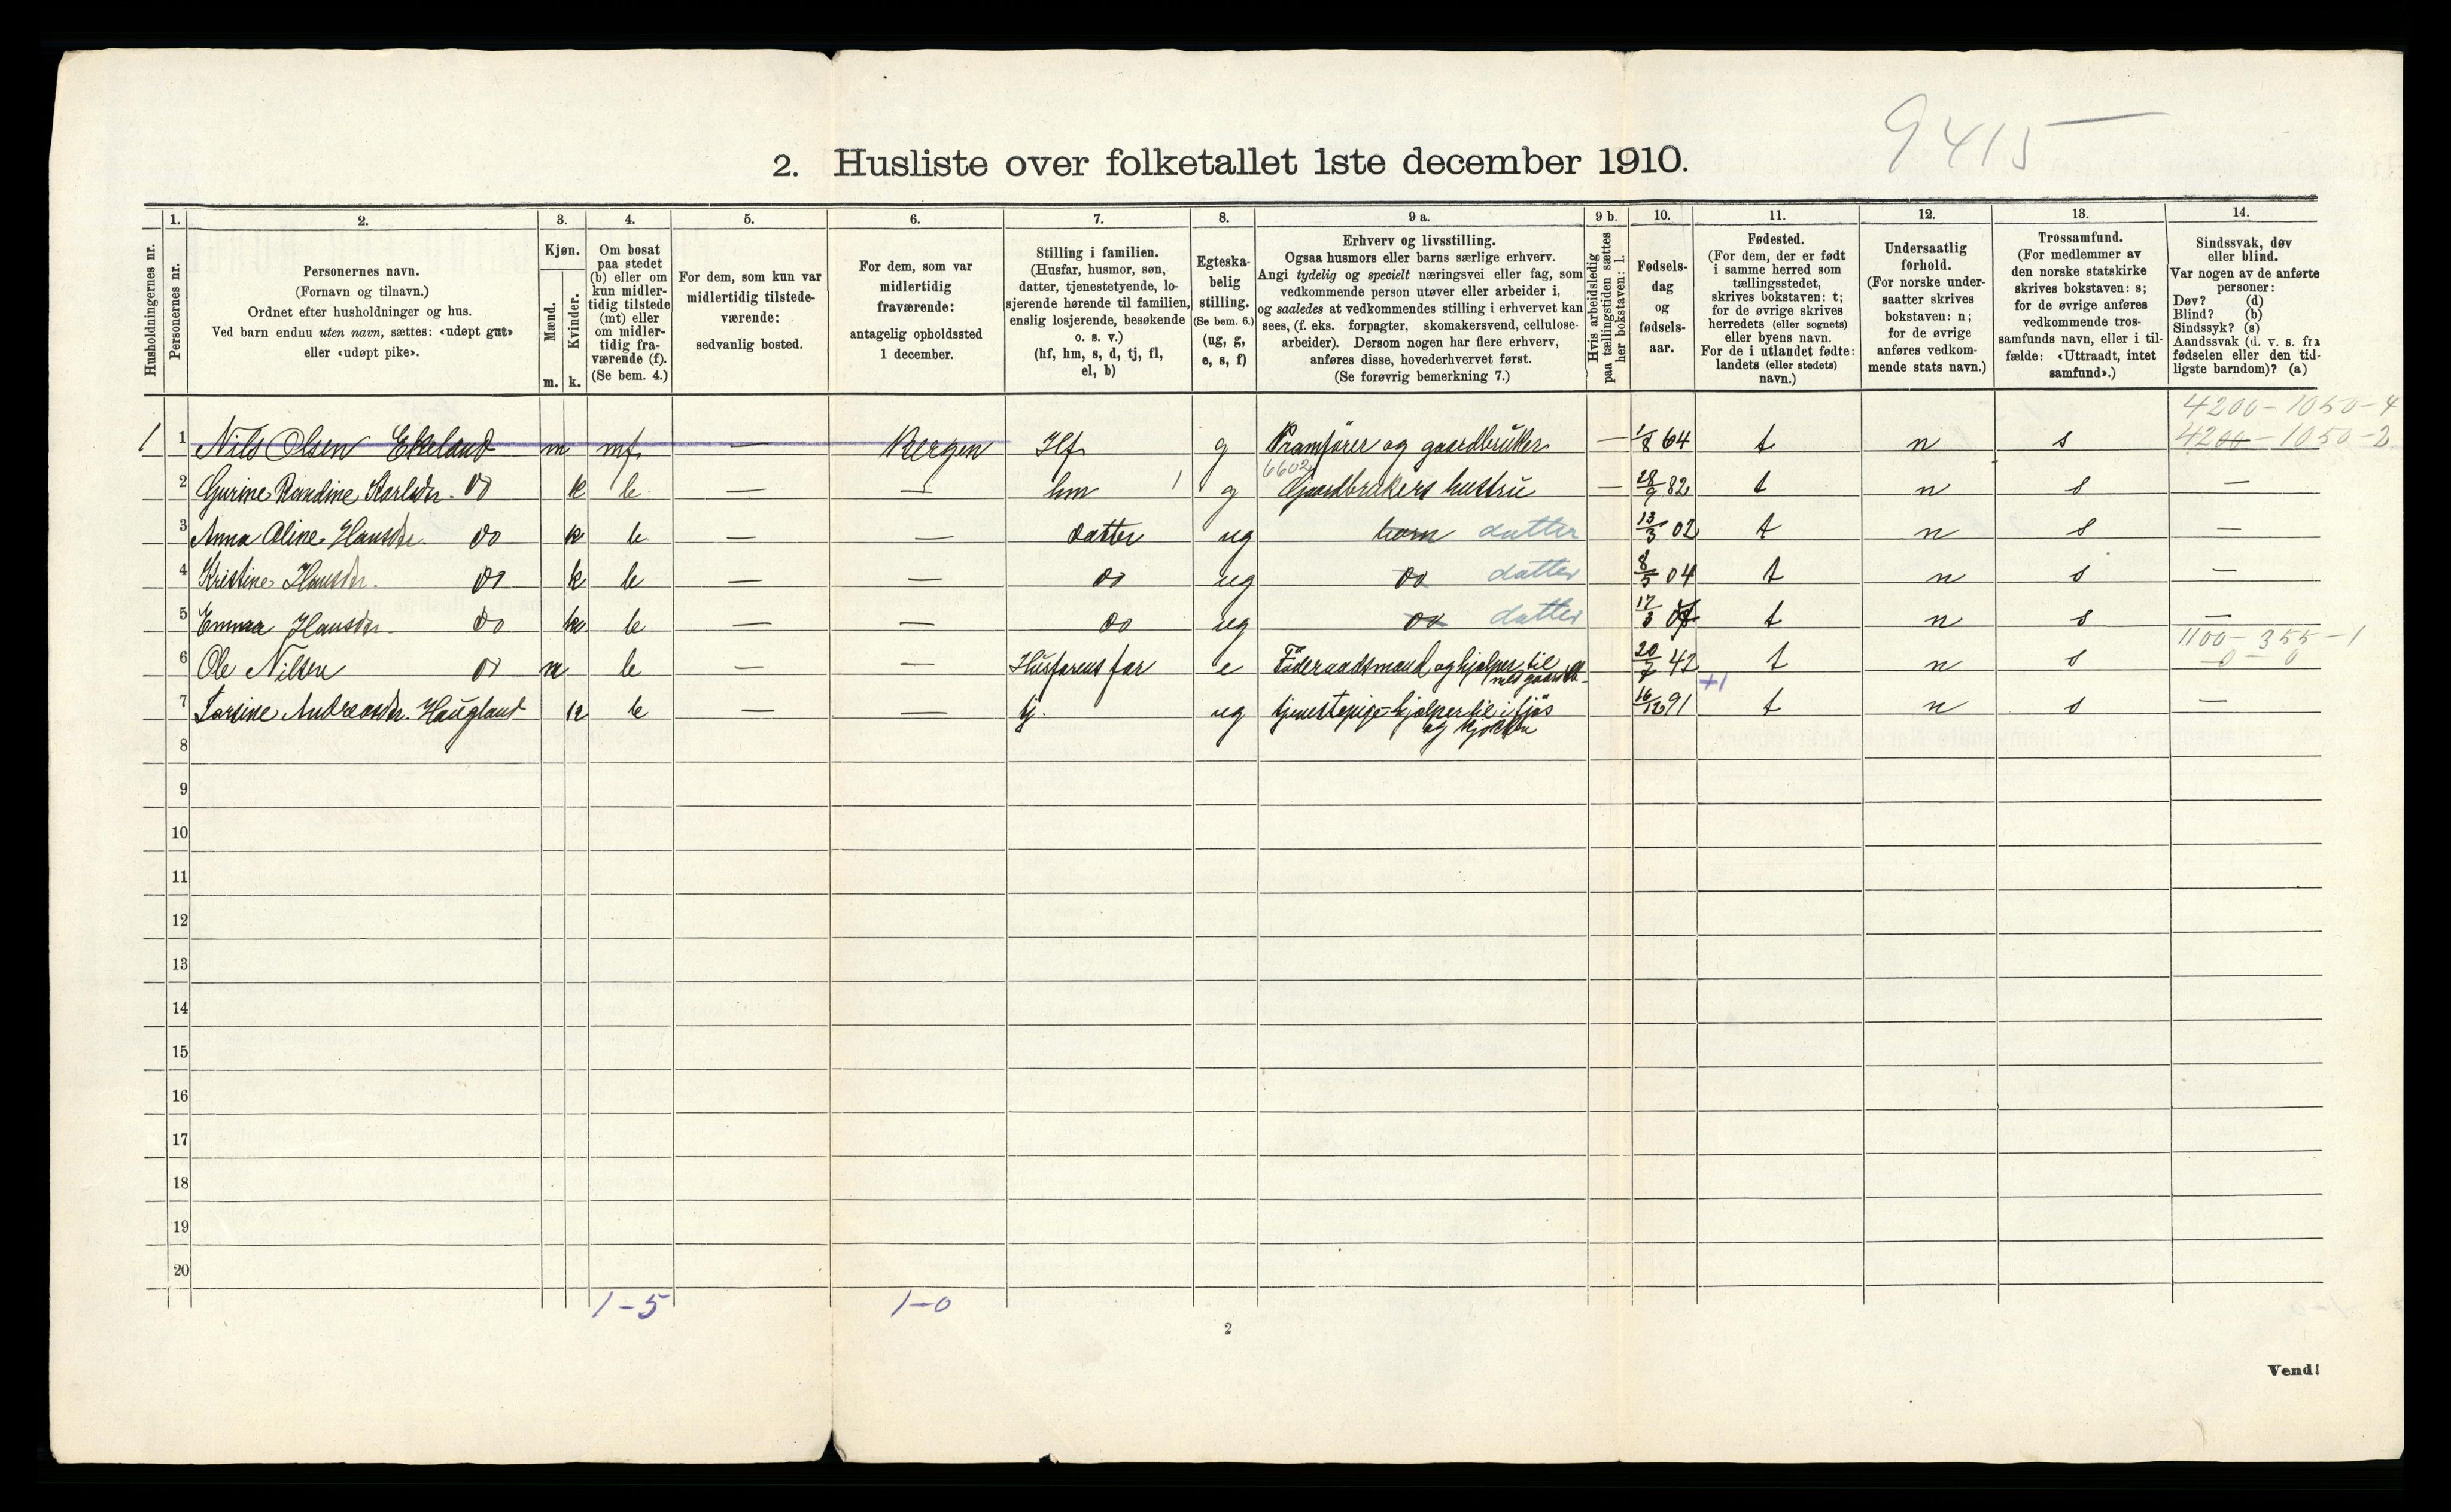 9415
2. Husliste over folketallet 1ste december 1910.
Husholdningernes nr.
1.
Personernes nr.
2.
Personernes navn.
(Fornavn og tilnavn.)
Ordnet efter husholdninger og hus.
Ved barn endnu uten navn, sættes: «udøpt gut»
eller «udøpt pike».
3.
Kjøn.
Mænd.
Kvinder.
m. k.
4.
Om bosat
paa stedet
(b) eller om
kun midler-
tidig tilstede
(mt) eller
om midler-
tidig fra-
værende (f).
(Se bem. 4.)
5.
For dem, som kun var
midlertidig tilstede-
værende:
sedvanlig bosted.
6.
For dem, som var
midlertidig
fraværende:
antagelig opholdssted
1 december.
7.
Stilling i familien.
(Husfar, husmor, søn,
datter, tjenestetyende, lo-
sjerende hørende til familien,
enslig losjerende, besøkende
o. s. v.)
(hf, hm, s, d, tj, fl,
el, b)
8.
Egteska-
belig
stilling.
(Se bem. 6.)
(ug, g,
e, s, f)
9 a.
Erhverv og livsstilling.
Ogsaa husmors eller barns særlige erhverv.
Angi tydelig og specielt næringsvei eller fag, som
vedkommende person utøver eller arbeider i,
og saaledes at vedkommendes stilling i erhvervet kan
sees, (f. eks. forpagter, skomakersvend, cellulose-
arbeider). Dersom nogen har flere erhverv,
anføres disse, hovederhvervet først.
(Se forøvrig bemerkning 7.)
9 b.
Hvis arbeidsledig
paa tællingstiden sættes
her bokstaven: l.
10.
Fødsels-
dag
og
fødsels-
aar.
11.
Fødested.
(For dem, der er født
i samme herred som
tællingsstedet,
skrives bokstaven: t;
for de øvrige skrives
herredets (eller sognets)
eller byens navn.
For de i utlandet fødte:
landets (eller stedets)
navn.)
12.
Undersaatlig
forhold.
(For norske under-
saatter skrives
bokstaven: n;
for de øvrige
anføres vedkom-
mende stats navn.)
13.
Trossamfund.
(For medlemmer av
den norske statskirke
skrives bokstaven: s;
for de øvrige anføres
vedkommende tros-
samfunds navn, eller i til-
fælde: «Uttraadt, intet
samfund».)
14.
Sindssvak, døv
eller blind.
Var nogen av de anførte
personer:
Døv? (d)
Blind? (b)
Sindssyk? (s)
Aandssvak (d. v. s. fra
fødselen eller den tid-
ligste barndom)? (a)
4200-1050-4
1 1 Nils Olsen Ekeland m mf. — Bergen Hf. g Pramfører og gaardbruker — 1/8 64 t n s 4200-1050-2
6602
2 Gurine Randine Karlsdr. do k b — — hm 1 g Gaardbrukers hustru — 28/9 82 t n s —
3 Anna Oline Hansdr. do k b — — datter ug barn datter 13/3 02 t n s —
4 Kristine Hansdr. do k b — — do ug do datter 8/5 04 t n s —
5 Emma Hansdr. do k b — — do ug do datter 17/3 t n s —
1100-355-1
6 Ole Nilsen do m b — — Husfarens far e Föderaadsmand og hjælper til 20/7 42 t n s 0 — 0
med gaardsb.
+1
7 Torsine Andreasdr. Haugland k b — — tj. ug tjenestepige hjælper til i fjös 16/12 91 t n s —
og kjökken
8
9
10
11
12
13
14
15
16
17
18
19
20
1-5 1-0
2
Vend!